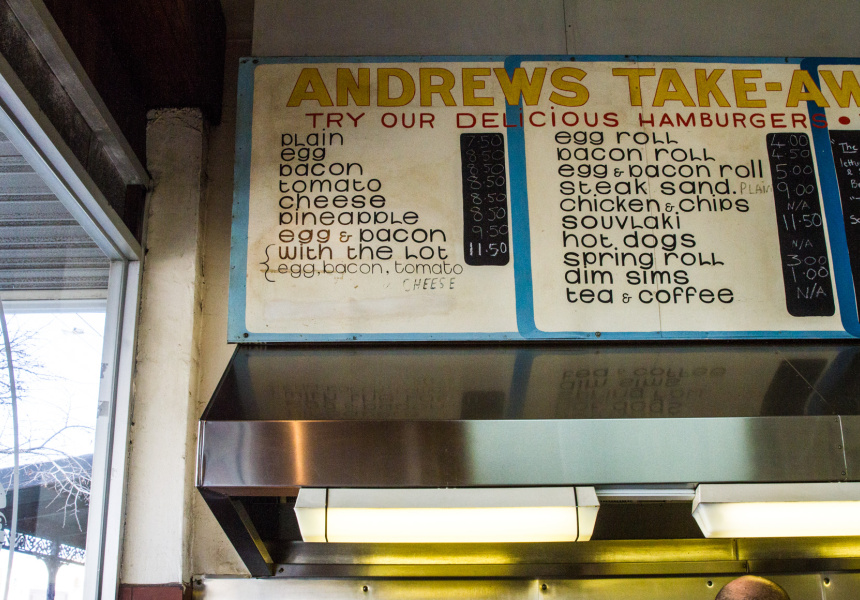 ANDREWS TAKE-AW
TRY OUR DELICIOUS HAMBURGERS •
plain 7.50
egg 8.50
bacon 8.50
tomato 8.50
cheese 8.50
pineapple 8.50
egg & bacon 9.50
with the lot 11.50
{egg, bacon, tomato
CHEESE
egg roll 4.00
bacon roll 4.50
egg & bacon roll 5.00
steak sand. PLAIN 9.00
chicken & chips N/A
souvlaki 11.50
hot dogs N/A
spring roll 3.00
dim sims 1.00
tea & coffee N/A
The